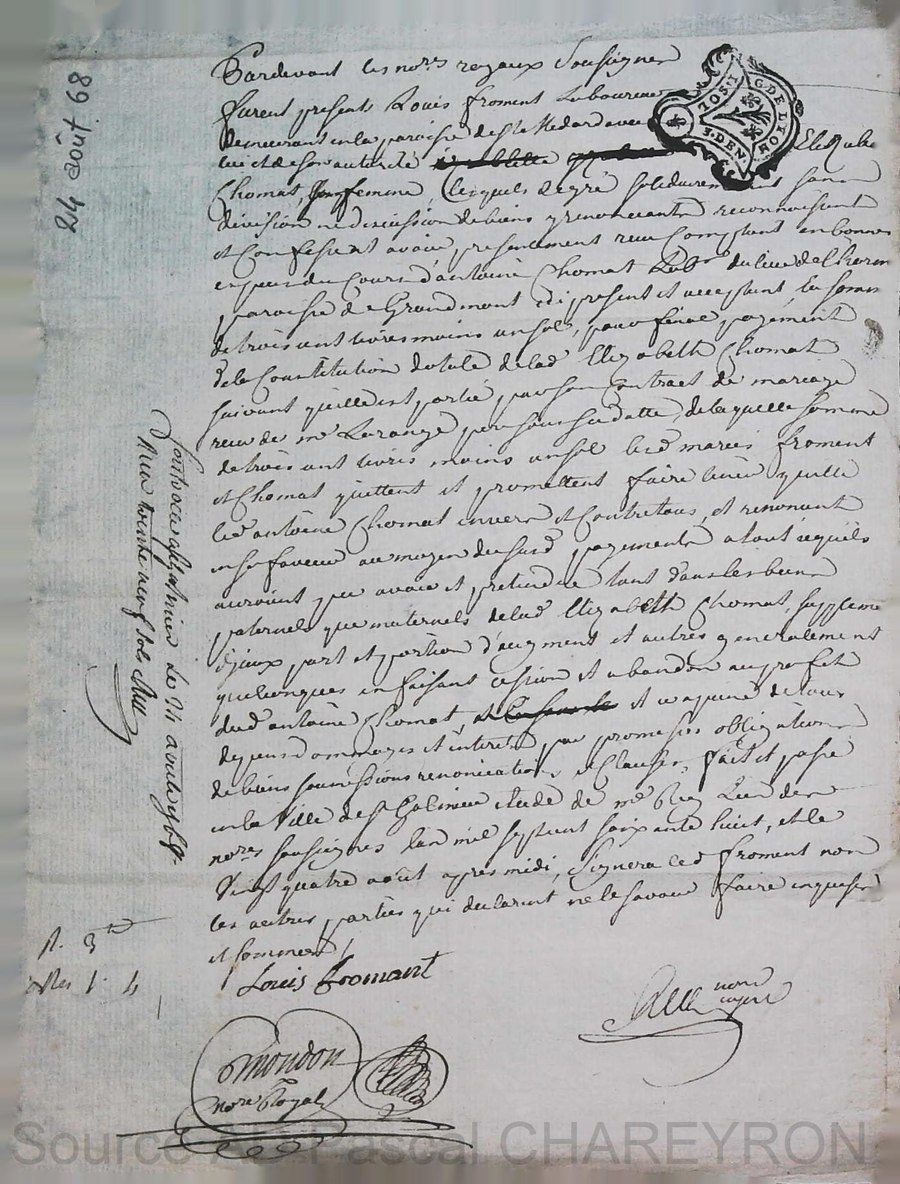 24 août 68
Pardevant les no.res royaux Soussignes
furent presents Louis froment Laboureur
demeurant en la paroisse de St Medard avec
luy et de son autorité Elizabe
Chomat, sa femme, lesquels de gré solidairement sans
division ne discussion de biens y renonceants reconnoissent
et Confessent avoir presentement reçu Comptant en bonnes
especes du Cours d'antoine Chomat Lab.r du lieu de
paroisse de Grandmont icy present et acceptant la somme
de trois cent livres moins un sol, pour final payement
de la Constitution dotale de lad Elizabeth Chomat
suivant qu'elle est portée par son Contract de mariage
reçu de me Laronze sous sa datte, de laquelle somme
de trois cent livres moins un sol lesd maries froment
et Chomat quittent et promettent faire tenir quitte
led antoine Chomat envers et Contre tous, et renoncent
en sa faveur au moyen du susd payement a tout ce quils
auroient peu avoir et pretendre tant dans les biens
paternels que maternels de lad Elizabeth Chomat, supplement
dyceux part et portion d'augment et autres generalement
quelconques en faisant cession et abandon au profit
dud antoine Chomat, et ce a peine de tous
depens dommages et interets par promesses obligations
de biens soumissions renonciations et Clauses, fait et passé
en la Ville de St Galmier etude de me l'un des
no.res soussignes l'an mil sept cent soixante huit, et le
Vingt quatre août apres midi, Signera led froment non
les autres parties qui declarent ne le savoir faire enquises
et sommees /
Louis Fromant
nore
Mondon
nore Royal
G. DE LYON
1 SOL
DEN.
Source AD Pascal CHAREYRON